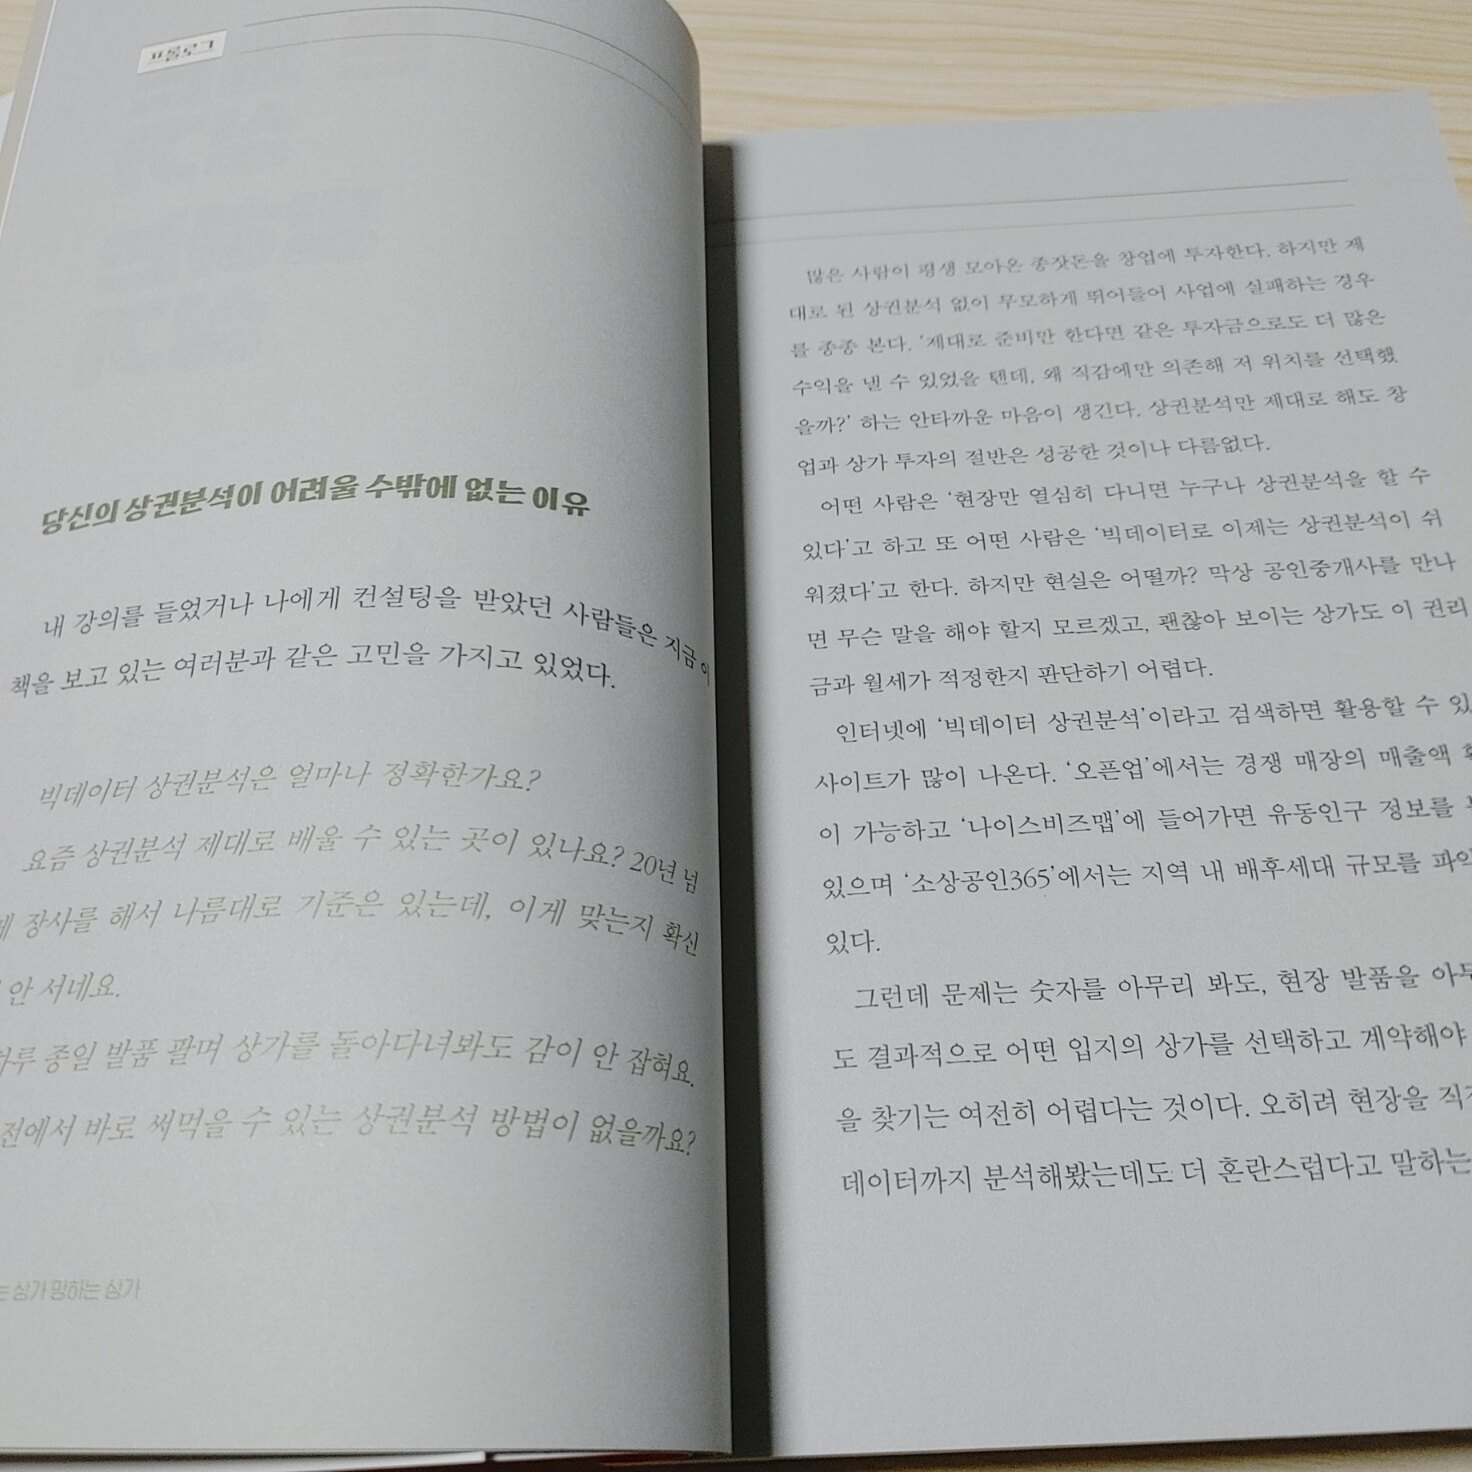 프롤로그
당신의 상권분석이 어려울 수밖에 없는 이유
내 강의를 들었거나 나에게 컨설팅을 받았던 사람들은 지금 이
책을 보고 있는 여러분과 같은 고민을 가지고 있었다.
빅데이터 상권분석은 얼마나 정확한가요?
요즘 상권분석 제대로 배울 수 있는 곳이 있나요? 20년 넘
장사를 해서 나름대로 기준은 있는데, 이게 맞는지 확신
안 서네요.
종일 발품 팔며 상가를 돌아다녀봐도 감이 안 잡혀요.
바로 써먹을 수 있는 상권분석 방법이 없을까요?
상가 망하는 상가
많은 사람이 평생 모아온 종잣돈을 창업에 투자한다. 하지만 제
대로 된 상권분석 없이 무모하게 뛰어들어 사업에 실패하는 경우
를 종종 본다. ‘제대로 준비만 한다면 같은 투자금으로도 더 많은
수익을 낼 수 있었을 텐데, 왜 직감에만 의존해 저 위치를 선택했
을까?’ 하는 안타까운 마음이 생긴다. 상권분석만 제대로 해도 창
업과 상가 투자의 절반은 성공한 것이나 다름없다.
어떤 사람은 ‘현장만 열심히 다니면 누구나 상권분석을 할 수
있다’고 하고 또 어떤 사람은 ‘빅데이터로 이제는 상권분석이 쉬
워졌다’고 한다. 하지만 현실은 어떨까? 막상 공인중개사를 만나
면 무슨 말을 해야 할지 모르겠고, 괜찮아 보이는 상가도 이 권리
금과 월세가 적정한지 판단하기 어렵다.
인터넷에 ‘빅데이터 상권분석’이라고 검색하면 활용할 수 있
사이트가 많이 나온다. ‘오픈업’에서는 경쟁 매장의 매출액
이 가능하고 ‘나이스비즈맵’에 들어가면 유동인구 정보를
있으며 ‘소상공인365’에서는 지역 내 배후세대 규모를
있다.
그런데 문제는 숫자를 아무리 봐도, 현장 발품을
도 결과적으로 어떤 입지의 상가를 선택하고 계약해야
을 찾기는 여전히 어렵다는 것이다. 오히려 현장을
데이터까지 분석해봤는데도 더 혼란스럽다고 말하는